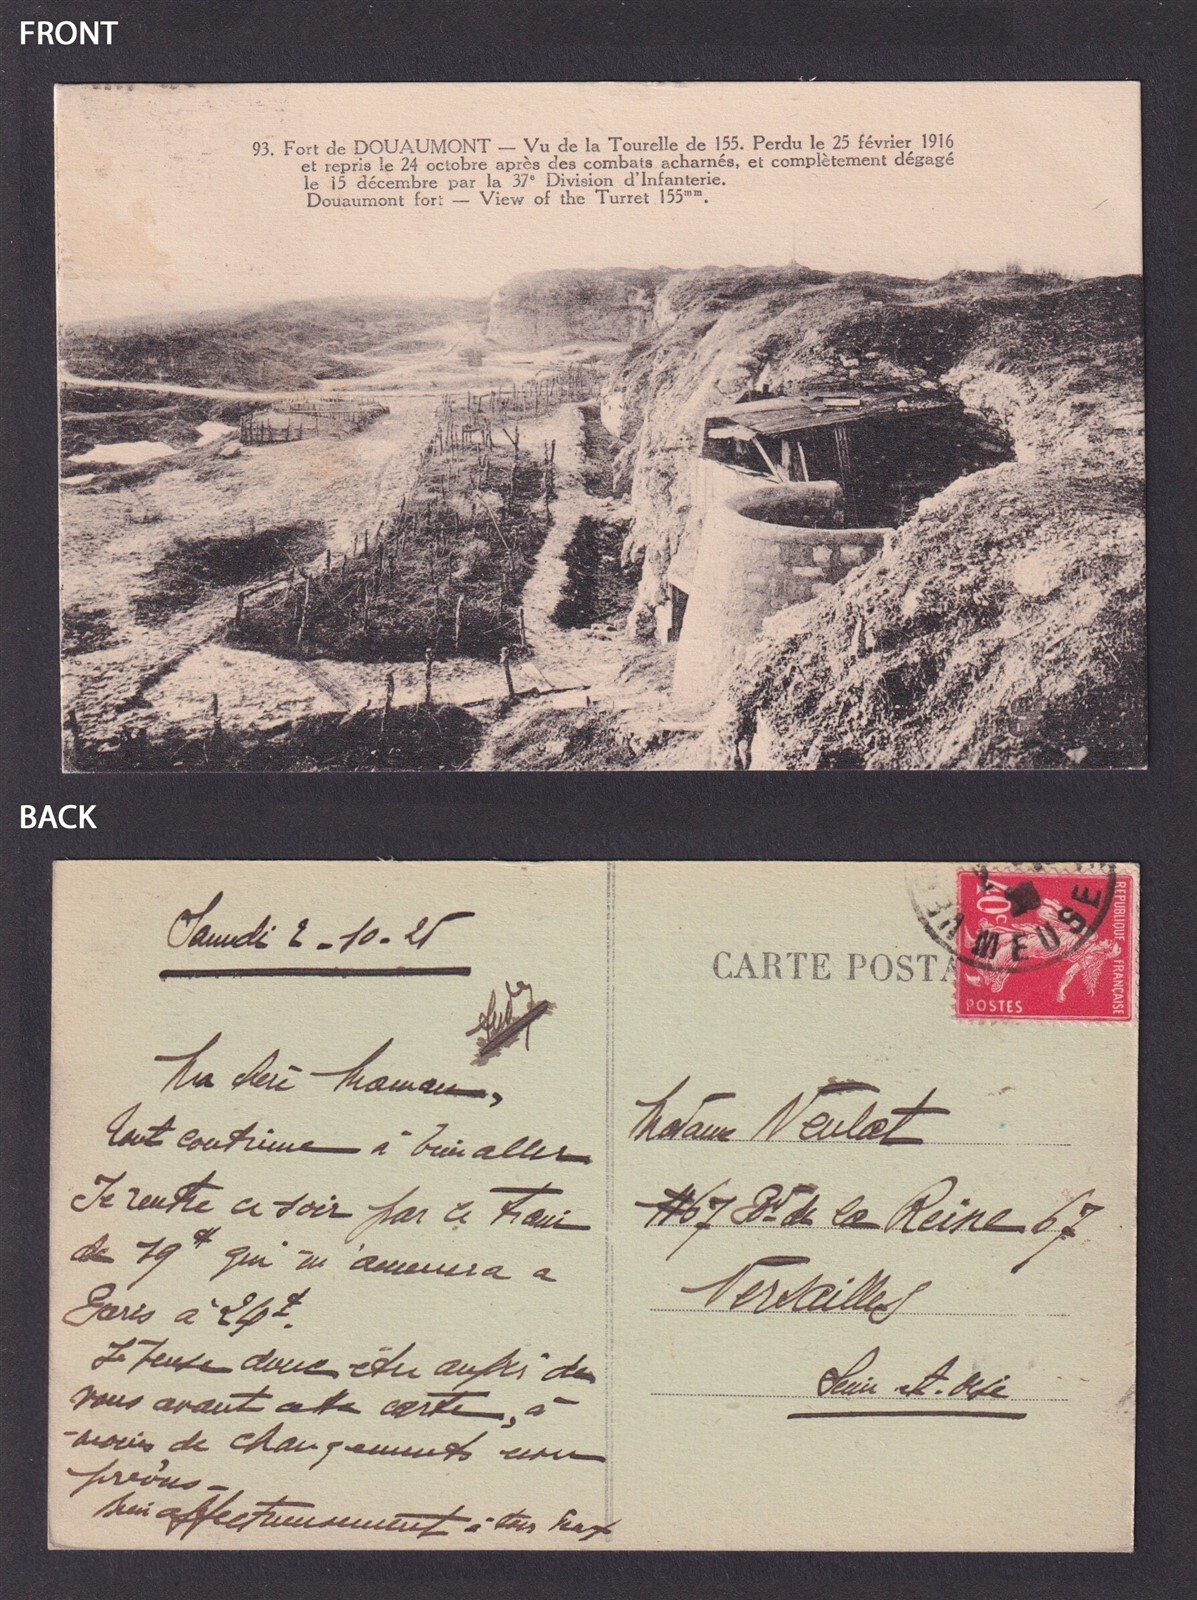 FRONT
93. Fort de DOUAUMONT — Vu de la Tourelle de 155. Perdu le 25 février 1916
et repris le 24 octobre après des combats acharnés, et complètement dégagé
le 15 décembre par la 37e Division d'Infanterie.
Douaumont fort — View of the Turret 155mm.
BACK
Samedi 2-10-25
Ma chère Maman,
Tout continue à bien aller
Je rentre ce soir par le train
de 19h qui m'amenera a
Paris à 24h.
Je pense donc être auprès de
vous avant cette carte, à
moins de changements non
prévus -
bien affectueusement à tous
CARTE POSTA
20c
REPUBLIQUE FRANÇAISE
POSTES
MEUSE
Madame Veulot
67 Bd de la Reine 67
Versailles
Seine et Oise